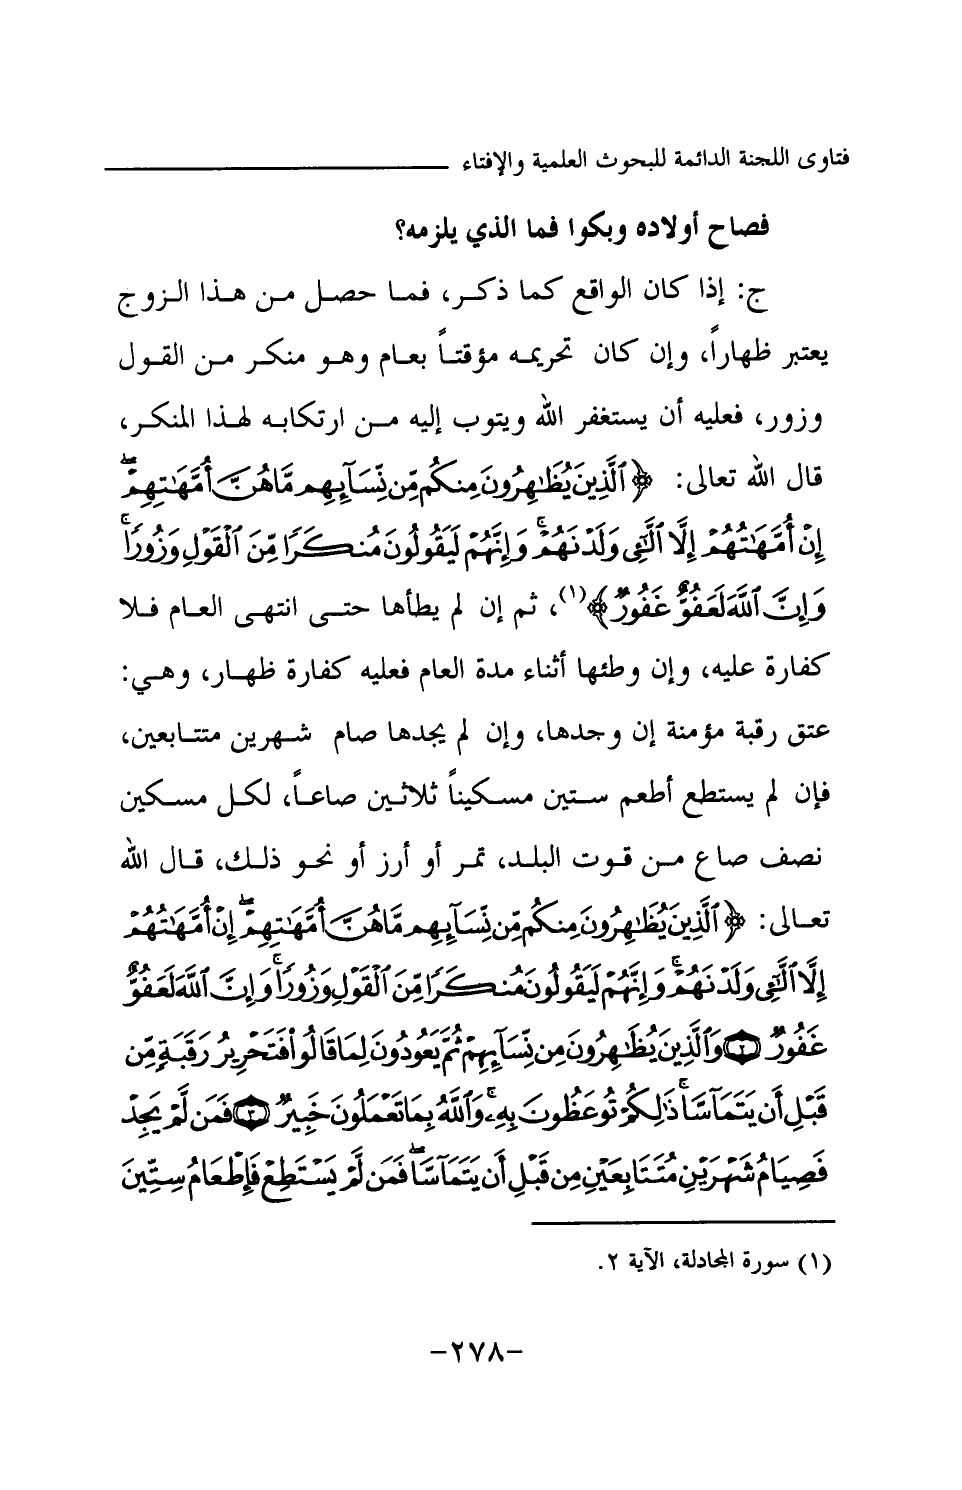 فتاوى اللجنة الدائمة للبحوث العلمية والإفتاء
فصاح أولاده وبكوا فما الذي يلزمه؟
ج: إذا كان الواقع كما ذكر، فما حصل من هذا الزوج
يعتبر ظهاراً، وإن كان تحريمه مؤقتاً بعام وهو منكر من القول
وزور، فعليه أن يستغفر الله ويتوب إليه من ارتكابه لهذا المنكر،
قال الله تعالى: ﴿ ٱلَّذِينَ يُظَٰهِرُونَ مِنكُم مِّن نِّسَآئِهِم مَّا هُنَّ أُمَّهَٰتِهِمْ ۖ
إِنْ أُمَّهَٰتُهُمْ إِلَّا ٱلَّٰٓـِٔى وَلَدْنَهُمْ ۚ وَإِنَّهُمْ لَيَقُولُونَ مُنكَرًا مِّنَ ٱلْقَوْلِ وَزُورًا ۚ
وَإِنَّ ٱللَّهَ لَعَفُوٌّ غَفُورٌ ﴾(١)، ثم إن لم يطأها حتى انتهى العام فلا
كفارة عليه، وإن وطئها أثناء مدة العام فعليه كفارة ظهار، وهي:
عتق رقبة مؤمنة إن وجدها، وإن لم يجدها صام شهرين متتابعين،
فإن لم يستطع أطعم ستين مسكيناً ثلاثين صاعاً، لكل مسكين
نصف صاع من قوت البلد، تمر أو أرز أو نحو ذلك، قال الله
تعالى: ﴿ ٱلَّذِينَ يُظَٰهِرُونَ مِنكُم مِّن نِّسَآئِهِم مَّا هُنَّ أُمَّهَٰتِهِمْ ۖ إِنْ أُمَّهَٰتُهُمْ
إِلَّا ٱلَّٰٓـِٔى وَلَدْنَهُمْ ۚ وَإِنَّهُمْ لَيَقُولُونَ مُنكَرًا مِّنَ ٱلْقَوْلِ وَزُورًا ۚ وَإِنَّ ٱللَّهَ لَعَفُوٌّ
غَفُورٌ ٢ وَٱلَّذِينَ يُظَٰهِرُونَ مِن نِّسَآئِهِمْ ثُمَّ يَعُودُونَ لِمَا قَالُوا۟ فَتَحْرِيرُ رَقَبَةٍ مِّن
قَبْلِ أَن يَتَمَآسَّا ۚ ذَٰلِكُمْ تُوعَظُونَ بِهِۦ ۚ وَٱللَّهُ بِمَا تَعْمَلُونَ خَبِيرٌ ٣ فَمَن لَّمْ يَجِدْ
فَصِيَامُ شَهْرَيْنِ مُتَتَابِعَيْنِ مِن قَبْلِ أَن يَتَمَآسَّا ۖ فَمَن لَّمْ يَسْتَطِعْ فَإِطْعَامُ سِتِّينَ
(١) سورة المجادلة، الآية ٢.
-٢٧٨-